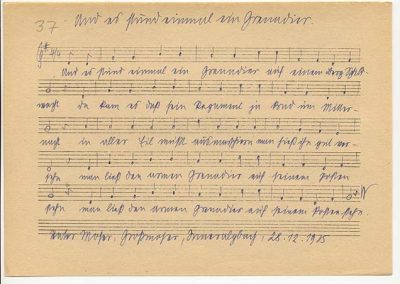 37. And es stund einmal ein Grenadier.
And es stund einmal ein Grenadier auf einem Berg Schild-
wacht da kam es daß sein Regement zu Mitter-
nacht in aller Eil mußt ausmarschiern man hieß ihn gut ver-
stehn man ließ den armen Grenadier auf seinem Posten
stehn man ließ den armen Grenadier auf seinem Posten stehn.
Moser, Großmoser, 28.12.1915